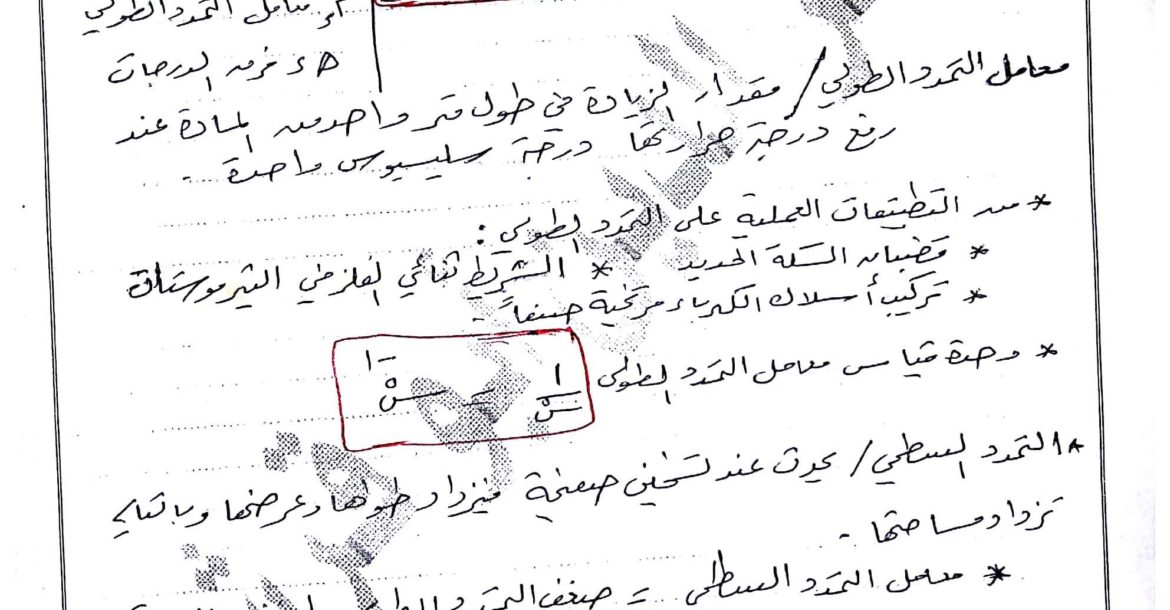 معامل التمدد الطولي
Δد فرق الدرجات
معامل التمدد الطولي / مقدار الزيادة في طول متر واحد من المادة عند
رفع درجة حرارتها درجة سليسيوس واحدة .
* من التطبيقات العملية على التمدد الطولي :
* قضبان السكة الحديد * الشريط ثنائي الفلز في الثيرموستات
* تركيب أسلاك الكهرباء مرتخية صيفاً .
* وحدة قياس معامل التمدد الطولي ١/°س = °س⁻¹
* التمدد السطحي / يحدث عند تسخين صفيحة فيزداد طولها وعرضها وبالتالي
تزداد مساحتها .
* معامل التمدد السطحي = ضعف التمدد